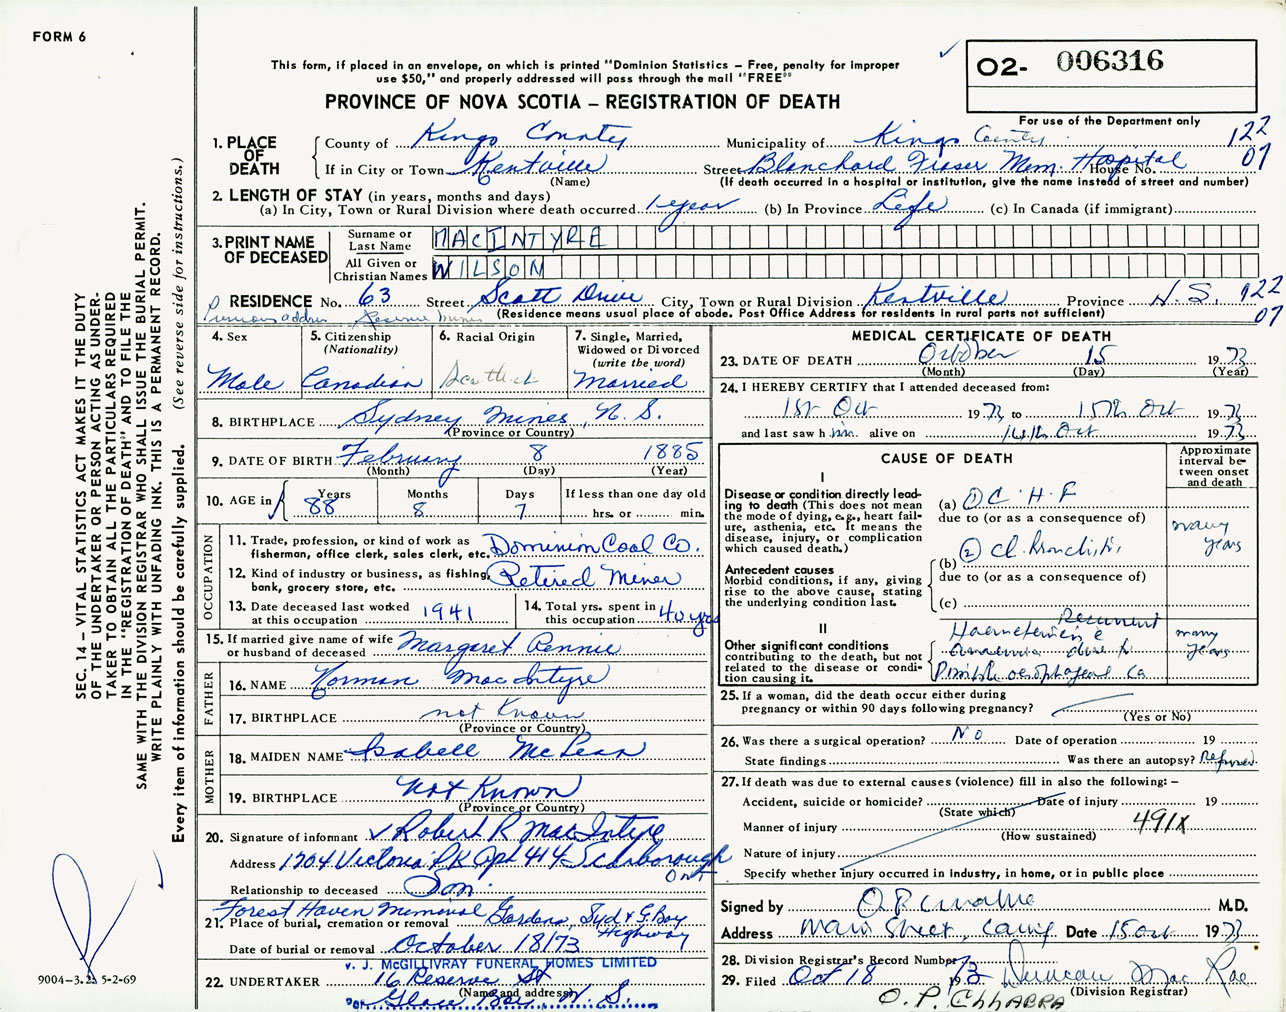 FORM 6
This form, if placed in an envelope, on which is printed "Dominion Statistics – Free, penalty for improper
use $50," and properly addressed will pass through the mail "FREE"
PROVINCE OF NOVA SCOTIA – REGISTRATION OF DEATH
02- 006316
For use of the Department only
SEC. 14 – VITAL STATISTICS ACT MAKES IT THE DUTY
OF THE UNDERTAKER OR PERSON ACTING AS UNDER-
TAKER TO OBTAIN ALL THE PARTICULARS REQUIRED
IN THE "REGISTRATION OF DEATH" AND TO FILE THE
SAME WITH THE DIVISION REGISTRAR WHO SHALL ISSUE THE BURIAL PERMIT.
WRITE PLAINLY WITH UNFADING INK. THIS IS A PERMANENT RECORD.
Every item of information should be carefully supplied. (See reverse side for instructions.)
1. PLACE OF DEATH
County of Kings County Municipality of Kings County 122
If in City or Town Kentville Street Blanchard Fraser Mem. Hospital House No. 07
(Name) (If death occurred in a hospital or institution, give the name instead of street and number)
2. LENGTH OF STAY (in years, months and days)
(a) In City, Town or Rural Division where death occurred 1 year (b) In Province Life (c) In Canada (if immigrant)
3. PRINT NAME OF DECEASED
Surname or Last Name MACINTYRE
All Given or Christian Names WILSON
RESIDENCE No. 63 Street Scott Drive City, Town or Rural Division Kentville Province N.S. 122
(Residence means usual place of abode. Post Office Address for residents in rural parts not sufficient) 07
Previous address Reserve Mines
4. Sex Male
5. Citizenship (Nationality) Canadian
6. Racial Origin Scottish
7. Single, Married, Widowed or Divorced (write the word) Married
8. BIRTHPLACE Sydney Mines, N.S.
(Province or Country)
9. DATE OF BIRTH February 8 1885
(Month) (Day) (Year)
10. AGE in Years 88 Months 8 Days 7 If less than one day old hrs. or min.
OCCUPATION
11. Trade, profession, or kind of work as
fisherman, office clerk, sales clerk, etc. Dominion Coal Co.
12. Kind of industry or business, as fishing,
bank, grocery store, etc. Retired Miner
13. Date deceased last worked at this occupation 1941
14. Total yrs. spent in this occupation 40 yrs
15. If married give name of wife or husband of deceased Margaret Rennie
FATHER
16. NAME Norman MacIntyre
17. BIRTHPLACE not known
(Province or Country)
MOTHER
18. MAIDEN NAME Isabell McLean
19. BIRTHPLACE Not Known
(Province or Country)
20. Signature of informant ✓ Robert R MacIntyre
Address 1204 Victoria PK Apt 414 Scarborough Ont
Relationship to deceased Son.
21. Place of burial, cremation or removal Forest Haven Memorial Gardens, Syd & G. Bay Highway
Date of burial or removal October 18/73
22. UNDERTAKER V. J. McGILLIVRAY FUNERAL HOMES LIMITED
16 Reserve St
(Name and address)
Glace Bay N. S.
9004-3.25 5-2-69
MEDICAL CERTIFICATE OF DEATH
23. DATE OF DEATH October 15 1973
(Month) (Day) (Year)
24. I HEREBY CERTIFY that I attended deceased from:
1st Oct 1973 to 15th Oct 1973
and last saw him alive on 14th Oct 1973
CAUSE OF DEATH
Approximate interval between onset and death
I
Disease or condition directly lead-
ing to death (This does not mean
the mode of dying, e.g., heart fail-
ure, asthenia, etc. It means the
disease, injury, or complication
which caused death.)
(a) ① C.H.F
due to (or as a consequence of)
many years
Antecedent causes
Morbid conditions, if any, giving
rise to the above cause, stating
the underlying condition last.
(b) ② Ch. Bronchitis
due to (or as a consequence of)
(c)
II
Other significant conditions
contributing to the death, but not
related to the disease or condi-
tion causing it.
Recurrent
Haematemesis c
anaemia due to
Possible oesophageal Ca
many years
25. If a woman, did the death occur either during
pregnancy or within 90 days following pregnancy?
(Yes or No)
26. Was there a surgical operation? No Date of operation 19
State findings Was there an autopsy? Refused
27. If death was due to external causes (violence) fill in also the following: –
Accident, suicide or homicide? Date of injury 19
(State which)
Manner of injury 491X
(How sustained)
Nature of injury
Specify whether injury occurred in industry, in home, or in public place
Signed by M.D.
Address Main Street, Date 15 Oct 1973
28. Division Registrar's Record Number
29. Filed Oct 18 1973 Duncan Mac Rae
(Division Registrar)
O. P. CHHABRA